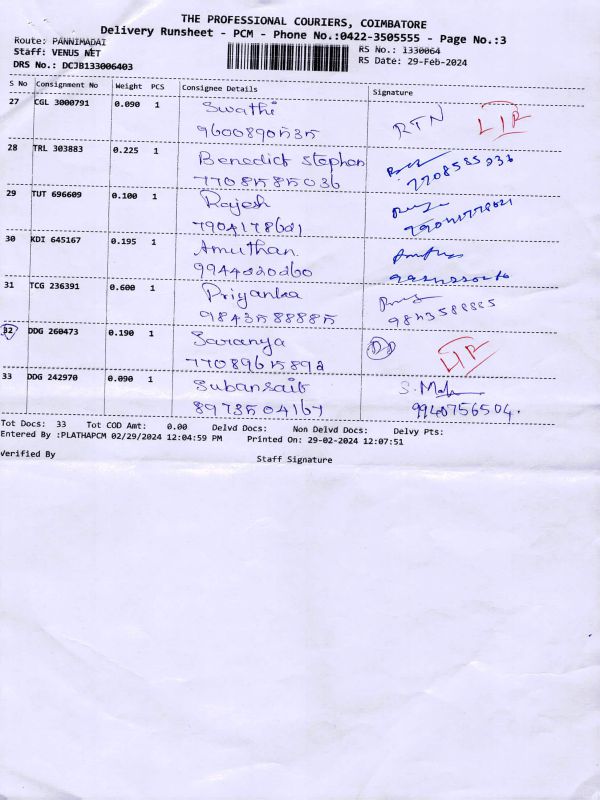 THE PROFESSIONAL COURIERS, COIMBATORE
Delivery Runsheet - PCM - Phone No.:0422-3505555 - Page No.:3
Route: PANNIMADAI
Staff: VENUS NET
RS No.: 1330064
DRS No.: DCJB133006403
RS Date: 29-Feb-2024
S No Consignment No Weight PCS Consignee Details Signature
27 CGL 3000791 0.090 1 Swathi
9600890535 RTN LIR
28 TRL 303883 0.225 1 Benedict Stephen
7708585036 7708585036
29 TUT 696609 0.100 1 Rajesh
7904178621 79041778621
30 KDI 645167 0.195 1 Amuthan
9944020260
31 TCG 236391 0.600 1 Priyanka
9843588885 9843588885
32 DDG 260473 0.190 1 Saranya
7708965892 LIR
33 DDG 242970 0.090 1 Subansaib
8973504167 9940756504.
Tot Docs: 33 Tot COD Amt: 0.00 Delvd Docs: Non Delvd Docs: Delvy Pts:
Entered By :PLATHAPCM 02/29/2024 12:04:59 PM Printed On: 29-02-2024 12:07:51
Verified By
Staff Signature